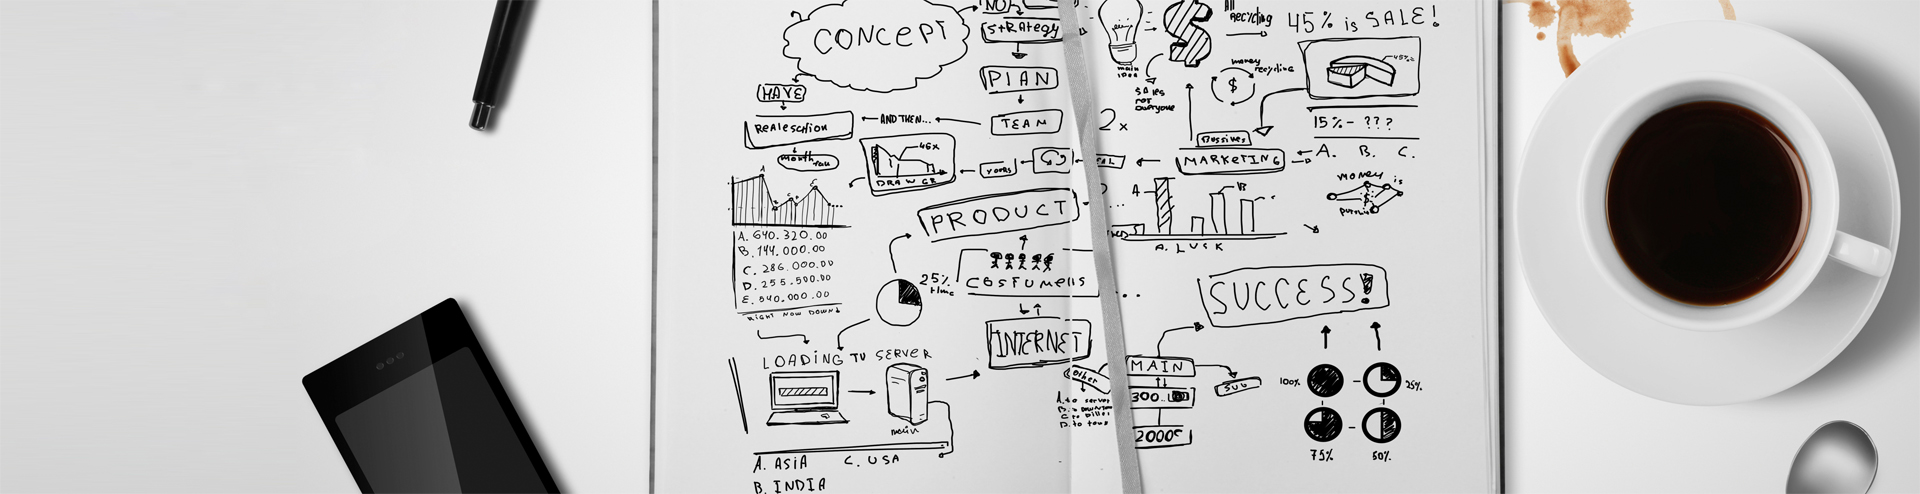 CONCEPT
NO
STRATEGY
PLAN
TEAM
HAVE
AND THEN...
month
46x
DRAW GR
YOURS
PRODUCT
A
A. 640.320.00
B. 144.000.00
C. 286.000.00
D. 255.500.00
E. 540.000.00
RIGHT NOW DOWN↓
25%
time
COSTUMERS
INTERNET
LOADING TO SERVER
main
A. ASIA
C. USA
B. INDIA
main
idea
SALES
not
everyone
All
Recycling
money
recycling
$
45% is SALE!
45%
15% - ???
A. B. C.
2x
MARKETING
money is
$
A
B
A. LUSK
SUCCESS!
MAIN
SUB
300..
2000
Other
100%
25%
75%
50%